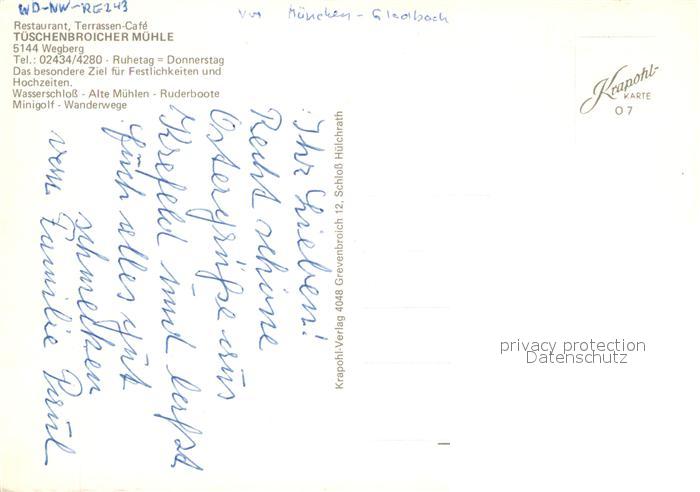 WD-NW-RE243
vor München-Gladbach
Restaurant, Terrassen-Café
TÜSCHENBROICHER MÜHLE
5144 Wegberg
Tel.: 02434/4280 - Ruhetag = Donnerstag
Das besondere Ziel für Festlichkeiten und
Hochzeiten.
Wasserschloß - Alte Mühlen - Ruderboote
Minigolf - Wanderwege
Krapohl-
KARTE
07
Ihr Lieben!
Recht schöne
Ostergrüße aus
Krefeld und laßt
Euch alles gut
schmecken
von Familie Paul
Krapohl-Verlag 4048 Grevenbroich 12, Schloß Hülchrath
privacy protection
Datenschutz